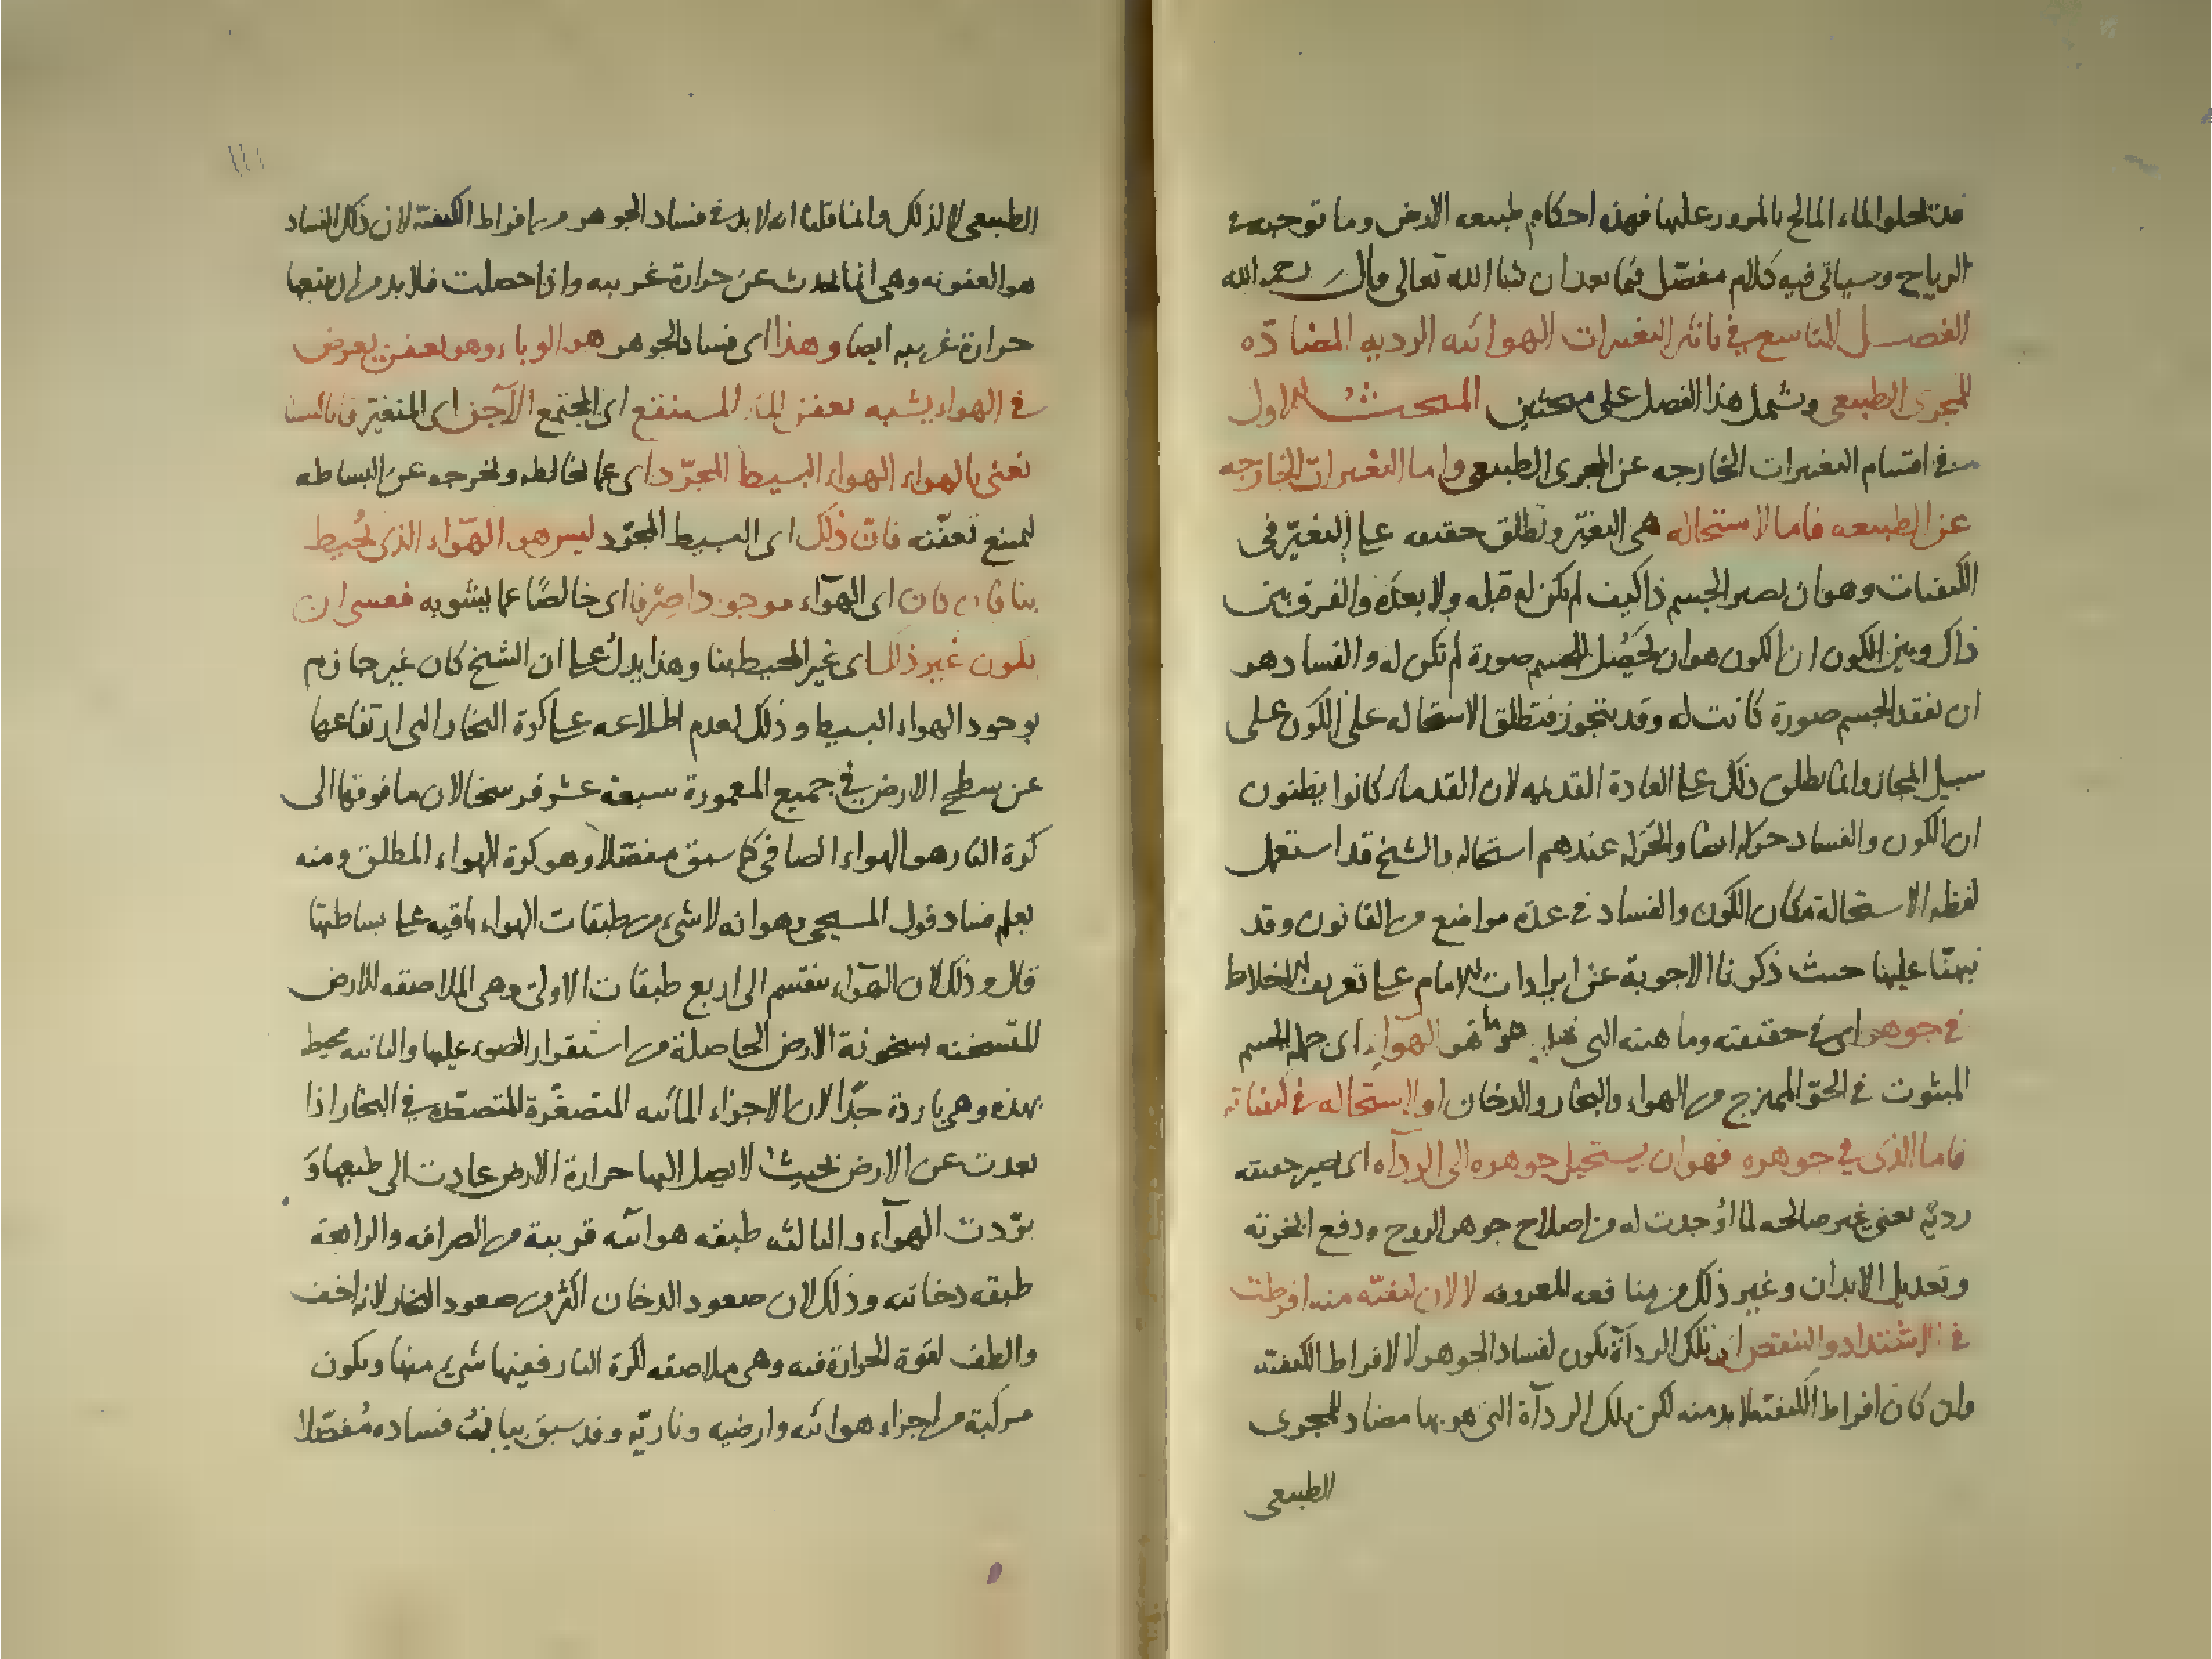 فقد تحلو الماء المالح بالمرور عليها فهذه احكام طبيعه الارض وما توجبه في
الرياح وسياتى فيه كلام مفصّل فيما بعد ان شا الله تعالى قال رحمه الله
الفصل التاسع في تاثير التغيرات الهوائيه الرديه المضادّه
للمجرى الطبيعى وشمل هذا الفصل على مبحثين المبحث الاول
في اقسام التغيرات الخارجه عن المجرى الطبيعى واما التغيرات الخارجه
عن الطبيعه فاما لاستحاله هى التغيّر وتطلق حقيقه على التغيّر فى
الكيفيات وهو ان يصير الجسم ذا كيف لم يكن له قبله ولا بعده والفرق بين
ذاك وبين الكون ان الكون هو ان يُحَصِّل الجسم صورة لم تكن له والفساد هو
ان يفقد الجسم صورة كانت له وقد يتجوز فتطلق الاستحاله على الكون على
سبيل المجاز وانما يطلق ذلك على العادة القديمه لان القدماء كانوا يظنون
ان الكون والفساد حركه ايضا والحركه عندهم استحاله والشيخ قد استعمل
لفظه الاستحالة مكان الكون والفساد في عدّه مواضع من القانون وقد
نبهنّا عليها حيث ذكرنا الاجوبة عن ايرادات الامام على تعريف الاخلاط
في جوهر اى في حقيقته وماهيته التى هو بها هو الهوآء اى جملة الجسم
المبثوت في الجوّ الممتزج من الهواء والبخار والدخان او لاستحاله في كيفياته
فاما الذى في جوهره فهو ان يستحيل جوهره الى الردآه اى يصير حقيقته
رديّه يعنى غير صالحه لما اوجدت له من اصلاح جوهر الروح ودفع ابخرته
وتعديل الابدان وغير ذلك من منافعه المعروفه لا لان كيفيّه منه افرطت
في الاشتداد والنقص اى تلك الردآة تكون لفساد الجوهر لا لافراط الكيفيّه
وان كان افراط الكيفيّه لابد منه لكن تلك الردآة التى هو بها مضاد للمجرى
الطبيعى
الطبيعى لا لذلك وانما قلنا انه لابد في فساد الجوهر من افراط الكيفيّه لان ذلك الفساد
هو العفونه وهى انما تحدث عن حرارة غريبه واذا حصلت فلابد من ان يتبعها
حرارة غريبه ايضا وهذا اى فساد الجوهر هو الوباء وهو تعفن يعرض
في الهواء يشبه تعفن الماء المستنقع اى المجتمع الآجن اى المتغيّر فانا لسنا
نعنى بالهواء الهواء البسيط المجرّد اى عما يخالطه ويخرجه عن البساطه
ليمنع تعفّنه فانّ ذلك اى البسيط المجرّد ليس هو الهوآء الذى يُحيط
بنا فان كان اى الهوآء موجودا صِرْفا اى خالصًا عما يشوبه فعسى ان
يكون غير ذلك اى غير المحيط بنا وهذا يدل على ان الشيخ كان غير جازم
بوجود الهواء البسيط وذلك لعدم اطلاعه على كرة البخار التى ارتفاعها
عن سطح الارض في جميع المعمورة سبعة عشر فرسخا لان ما فوقها الى
كرة النار هو الهواء الصافى كما سبق مفصّلا وهو كرة الهواء المطلق ومنه
يعلم فساد قول المسيحى وهو انه لا شىء من طبقات الهواء باقيه على بساطتها
قال وذلك لان الهوآء ينقسم الى اربع طبقات الاولى وهى الملاصقه للارض
المتسخنه بسخونة الارض الحاصلة من استقرار الضوء عليها والثانيه محيط
بهذه وهى باردة جدّا لان الاجزاء المائيه المتصغّرة المتصعّده في البخار اذا
بعدت عن الارض بحيث لا يصل اليها حرارة الارض عادت الى طبعها وَ
برّدت الهوآء والثالثه طبقه هوائيه قريبة من الصرافه والرابعة
طبقه دخانيه وذلك لان صعود الدخان اكثر من صعود البخار لانه اخف
والطف لقوة الحرارة فيه وهى ملاصقه لكرة النار ففيها شىء منها ويكون
مركبة من اجزاء هوائيه وارضيه وناريّه وقد سبق بيان فساده مُفصّلا